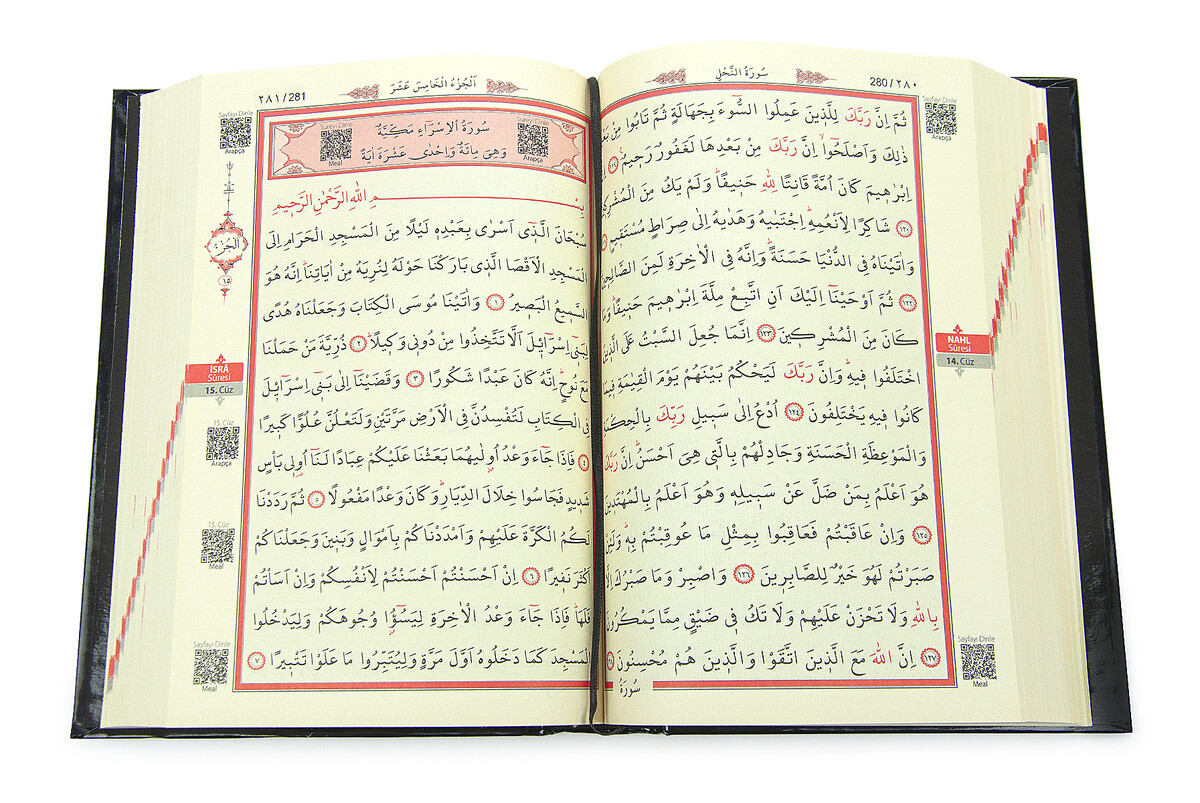 280/٢٨٠
سُورَةُ النَّحْلِ
Sayfayı Dinle
Arapça
ثُمَّ اِنَّ رَبَّكَ لِلَّذٖينَ عَمِلُوا السُّٓوءَ بِجَهَالَةٍ ثُمَّ تَابُوا مِنْ
ذٰلِكَ وَاَصْلَحُٓوا اِنَّ رَبَّكَ مِنْ بَعْدِهَا لَغَفُورٌ رَحٖيمٌ ﴿١١٩﴾
اِبْرٰهٖيمَ كَانَ اُمَّةً قَانِتًا لِلّٰهِ حَنٖيفًا وَلَمْ يَكُ مِنَ الْمُشْرِكٖ
﴿١٢٠﴾ شَاكِرًا لِاَنْعُمِهِ اِجْتَبٰيهُ وَهَدٰيهُ اِلٰى صِرَاطٍ مُسْتَقٖيمٍ
وَاٰتَيْنَاهُ فِى الدُّنْيَا حَسَنَةً وَاِنَّهُ فِى الْاٰخِرَةِ لَمِنَ الصَّالِحٖ
﴿١٢٢﴾ ثُمَّ اَوْحَيْنَٓا اِلَيْكَ اَنِ اتَّبِعْ مِلَّةَ اِبْرٰهٖيمَ حَنٖيفًا وَمَا
كَانَ مِنَ الْمُشْرِكٖينَ ﴿١٢٣﴾ اِنَّمَا جُعِلَ السَّبْتُ عَلَى الَّذٖ
اخْتَلَفُوا فٖيهِ وَاِنَّ رَبَّكَ لَيَحْكُمُ بَيْنَهُمْ يَوْمَ الْقِيٰمَةِ فٖيمَا
كَانُوا فٖيهِ يَخْتَلِفُونَ ﴿١٢٤﴾ اُدْعُ اِلٰى سَبٖيلِ رَبِّكَ بِالْحِكْمَ
وَالْمَوْعِظَةِ الْحَسَنَةِ وَجَادِلْهُمْ بِالَّتٖى هِىَ اَحْسَنُ اِنَّ رَبَّكَ
هُوَ اَعْلَمُ بِمَنْ ضَلَّ عَنْ سَبٖيلِهٖ وَهُوَ اَعْلَمُ بِالْمُهْتَدٖينَ
﴿١٢٥﴾ وَاِنْ عَاقَبْتُمْ فَعَاقِبُوا بِمِثْلِ مَا عُوقِبْتُمْ بِهٖ وَلَئِنْ
صَبَرْتُمْ لَهُوَ خَيْرٌ لِلصَّابِرٖينَ ﴿١٢٦﴾ وَاصْبِرْ وَمَا صَبْرُكَ اِلَّا
بِاللّٰهِ وَلَا تَحْزَنْ عَلَيْهِمْ وَلَا تَكُ فٖى ضَيْقٍ مِمَّا يَمْكُرُونَ
﴿١٢٧﴾ اِنَّ اللّٰهَ مَعَ الَّذٖينَ اتَّقَوْا وَالَّذٖينَ هُمْ مُحْسِنُونَ
سُورَةُ
NAHL
Sûresi
14. Cüz
Sayfayı Dinle
Meal
اَلْجُزْءُ الْخَامِسَ عَشَرَ
٢٨١/281
Sayfayı Dinle
Arapça
Sûreyi Dinle
Arapça
سُورَةُ الْاِسْرَٓاءِ مَكِّيَّةٌ
وَهِىَ مِائَةٌ وَاِحْدٰى عَشْرَةَ اٰيَةً
Sûreyi Dinle
Meal
بِسْمِ اللّٰهِ الرَّحْمٰنِ الرَّحٖيمِ
سُبْحَانَ الَّذٖٓى اَسْرٰى بِعَبْدِهٖ لَيْلًا مِنَ الْمَسْجِدِ الْحَرَامِ اِلَى
الْمَسْجِدِ الْاَقْصَا الَّذٖى بَارَكْنَا حَوْلَهُ لِنُرِيَهُ مِنْ اٰيَاتِنَا اِنَّهُ هُوَ
السَّمٖيعُ الْبَصٖيرُ ﴿١﴾ وَاٰتَيْنَا مُوسَى الْكِتَابَ وَجَعَلْنَاهُ هُدًى
لِبَنٖٓى اِسْرَٓائٖلَ اَلَّا تَتَّخِذُوا مِنْ دُونٖى وَكٖيلًا ﴿٢﴾ ذُرِّيَّةَ مَنْ حَمَلْنَا
مَعَ نُوحٍ اِنَّهُ كَانَ عَبْدًا شَكُورًا ﴿٣﴾ وَقَضَيْنَٓا اِلٰى بَنٖٓى اِسْرَٓائٖلَ
فِى الْكِتَابِ لَتُفْسِدُنَّ فِى الْاَرْضِ مَرَّتَيْنِ وَلَتَعْلُنَّ عُلُوًّا كَبٖيرًا
﴿٤﴾ فَاِذَا جَٓاءَ وَعْدُ اُو۫لٰيهُمَا بَعَثْنَا عَلَيْكُمْ عِبَادًا لَنَٓا اُو۬لٖى بَاْسٍ
شَدٖيدٍ فَجَاسُوا خِلَالَ الدِّيَارِ وَكَانَ وَعْدًا مَفْعُولًا ﴿٥﴾ ثُمَّ رَدَدْنَا
لَكُمُ الْكَرَّةَ عَلَيْهِمْ وَاَمْدَدْنَاكُمْ بِاَمْوَالٍ وَبَنٖينَ وَجَعَلْنَاكُمْ
اَكْثَرَ نَفٖيرًا ﴿٦﴾ اِنْ اَحْسَنْتُمْ اَحْسَنْتُمْ لِاَنْفُسِكُمْ وَاِنْ اَسَاْتُمْ
فَلَهَا فَاِذَا جَٓاءَ وَعْدُ الْاٰخِرَةِ لِيَسُٓؤُ۫ا وُجُوهَكُمْ وَلِيَدْخُلُوا
الْمَسْجِدَ كَمَا دَخَلُوهُ اَوَّلَ مَرَّةٍ وَلِيُتَبِّرُوا مَا عَلَوْا تَتْبٖيرًا ﴿٧﴾
اَلْجُزْءُ
١٥
İSRÂ
Sûresi
15. Cüz
15. Cüz
Arapça
15. Cüz
Meal
Sayfayı Dinle
Meal